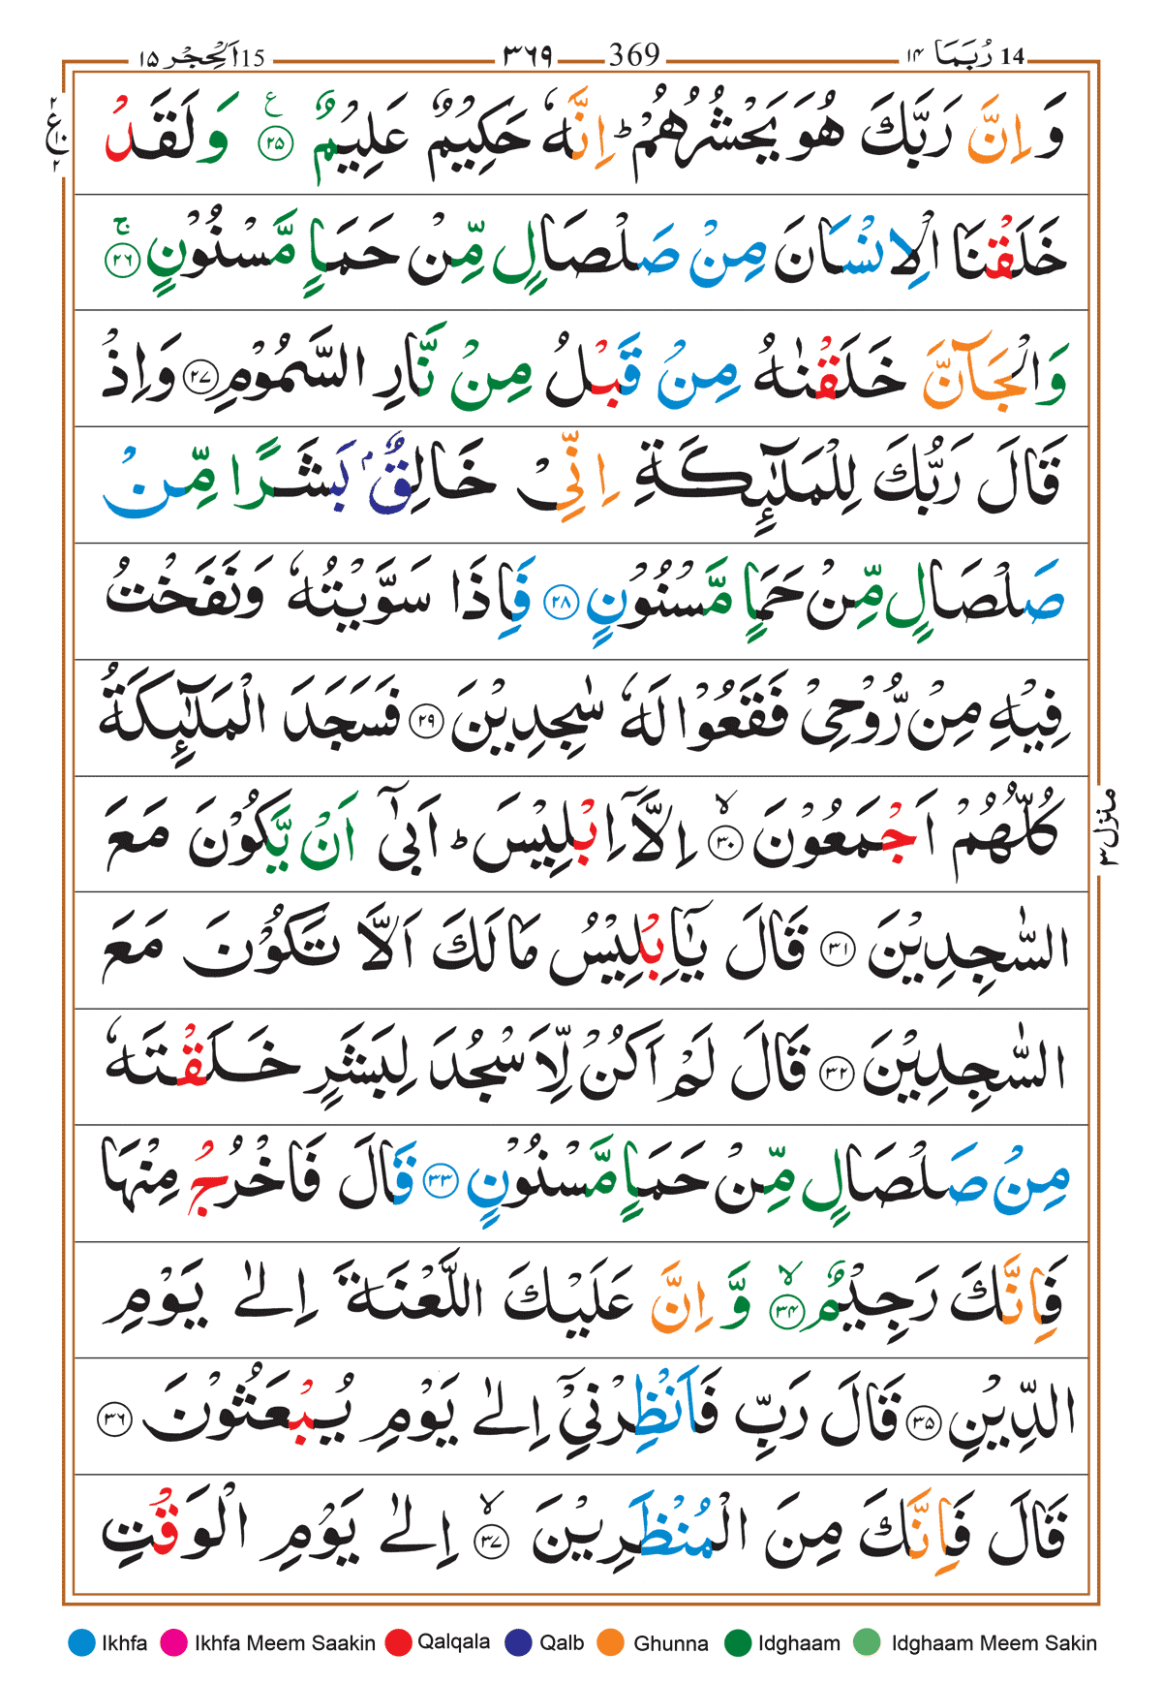 15 اَلْحِجْر ١٥ ٣٦٩ 369 14 رُبَمَا ١٤
وَ اِنَّ رَبَّكَ هُوَ يَحْشُرُهُمْ ؕ اِنَّهٗ حَكِيْمٌ عَلِيْمٌ ﴿۲۵﴾ ع وَ لَقَدْ
ع ٢ ١٠ ٢
خَلَقْنَا الْاِنْسَانَ مِنْ صَلْصَالٍ مِّنْ حَمَاٍ مَّسْنُوْنٍ ﴿۲۶﴾ ۚ
وَالْجَآنَّ خَلَقْنٰهُ مِنْ قَبْلُ مِنْ نَّارِ السَّمُوْمِ ﴿۲۷﴾ وَاِذْ
قَالَ رَبُّكَ لِلْمَلٰٓئِكَةِ اِنِّىْ خَالِقٌۢ بَشَرًا مِّنْ
صَلْصَالٍ مِّنْ حَمَاٍ مَّسْنُوْنٍ ﴿۲۸﴾ فَاِذَا سَوَّيْتُهٗ وَنَفَخْتُ
فِيْهِ مِنْ رُّوْحِىْ فَقَعُوْا لَهٗ سٰجِدِيْنَ ﴿۲۹﴾ فَسَجَدَ الْمَلٰٓئِكَةُ
كُلُّهُمْ اَجْمَعُوْنَ ﴿۳۰﴾ ۙ اِلَّاۤ اِبْلِيْسَ ؕ اَبٰٓى اَنْ يَّكُوْنَ مَعَ
منزل ٣
السّٰجِدِيْنَ ﴿۳۱﴾ قَالَ يٰۤاِبْلِيْسُ مَا لَكَ اَلَّا تَكُوْنَ مَعَ
السّٰجِدِيْنَ ﴿۳۲﴾ قَالَ لَمْ اَكُنْ لِّاَسْجُدَ لِبَشَرٍ خَلَقْتَهٗ
مِنْ صَلْصَالٍ مِّنْ حَمَاٍ مَّسْنُوْنٍ ﴿۳۳﴾ قَالَ فَاخْرُجْ مِنْهَا
فَاِنَّكَ رَجِيْمٌ ﴿۳۴﴾ ۙ وَّ اِنَّ عَلَيْكَ اللَّعْنَةَ اِلٰى يَوْمِ
الدِّيْنِ ﴿۳۵﴾ قَالَ رَبِّ فَاَنْظِرْنِىْۤ اِلٰى يَوْمِ يُبْعَثُوْنَ ﴿۳۶﴾
قَالَ فَاِنَّكَ مِنَ الْمُنْظَرِيْنَ ﴿۳۷﴾ ۙ اِلٰى يَوْمِ الْوَقْتِ
Ikhfa Ikhfa Meem Saakin Qalqala Qalb Ghunna Idghaam Idghaam Meem Sakin